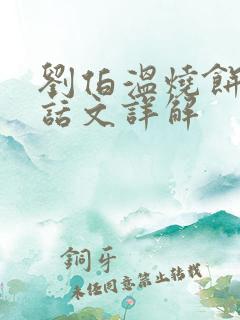 劉伯溫燒餅
話文詳解
銅牙
未經同意禁止轉載